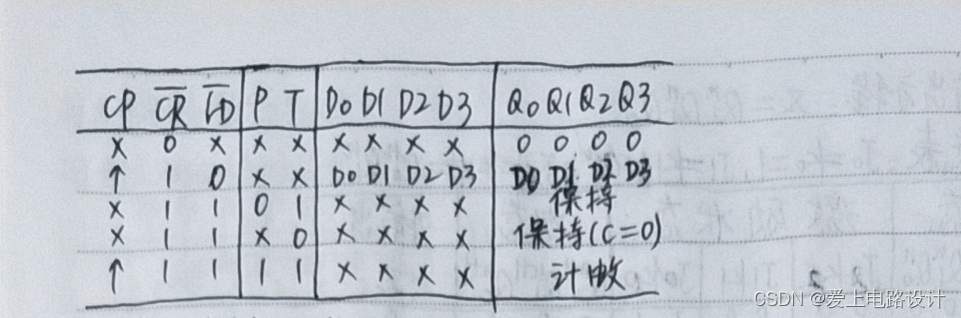 CP C̅R̅ L̅D̅ P T D0 D1 D2 D3 Q0 Q1 Q2 Q3
× 0 × × × × × × × 0 0 0 0
↑ 1 0 × × D0 D1 D2 D3 D0 D1 D2 D3
× 1 1 0 1 × × × × 保持
× 1 1 × 0 × × × × 保持(C=0)
↑ 1 1 1 1 × × × × 计数
CSDN @爱上电路设计